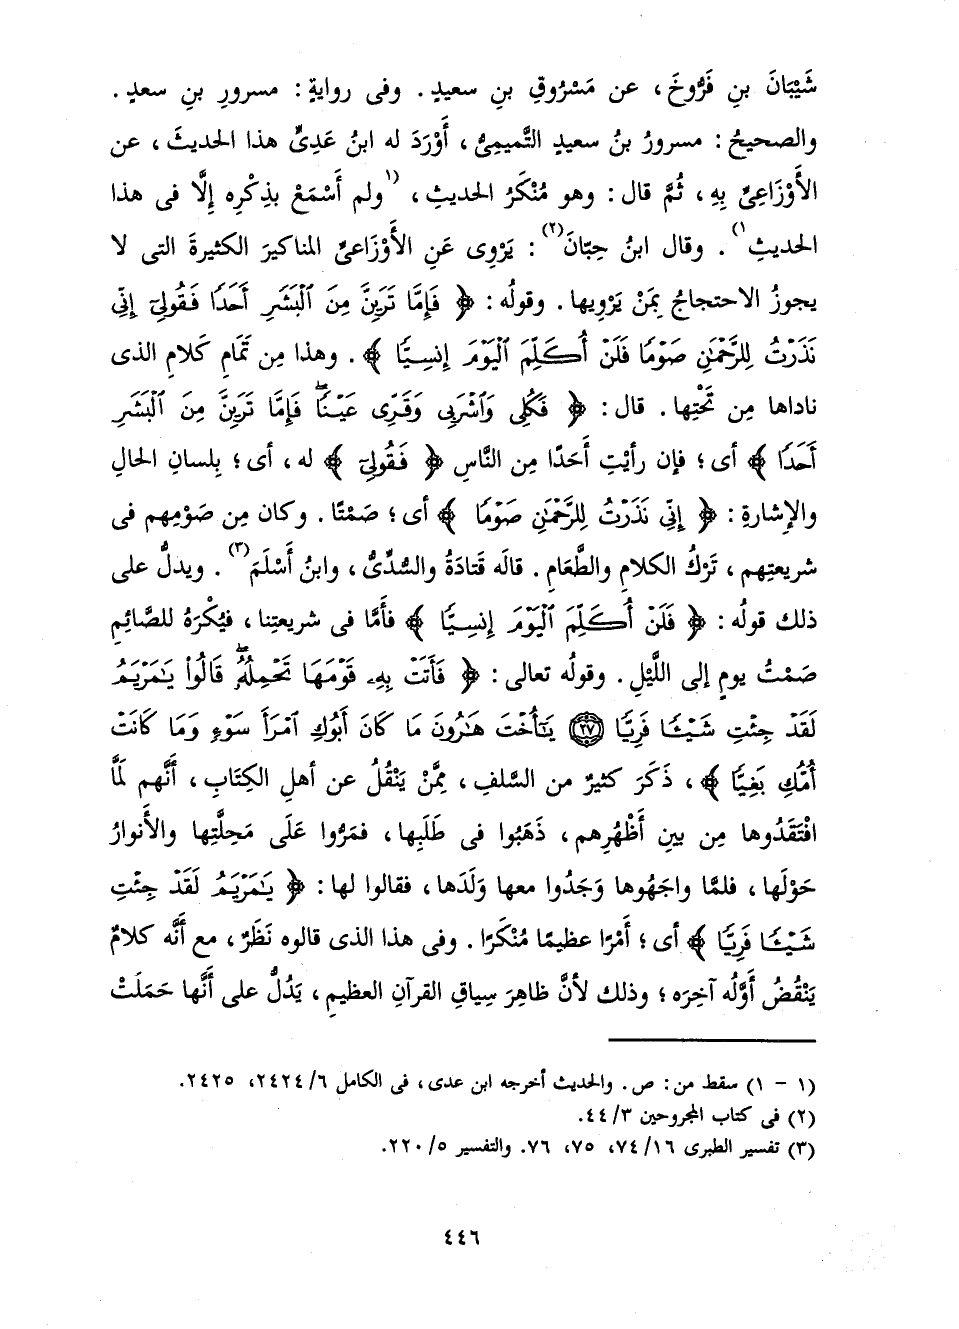 شَيْبَانَ بنِ فَرُّوخَ، عن مَسْرُوقِ بنِ سعيدٍ. وفى روايةٍ: مسرورِ بنِ سعدٍ.
والصحيحُ: مسرورُ بنُ سعيدٍ التَّمِيمِىُّ، أَوْرَدَ له ابنُ عَدِىٍّ هذا الحديثَ، عن
الأَوْزَاعِىِّ بِهِ، ثُمَّ قال: وهو مُنْكَرُ الحديثِ، (١ولم أَسْمَعْ بذِكْرِه إِلَّا فى هذا
الحديثِ١). وقال ابنُ حِبَّانَ(٢): يَرْوِى عَنِ الأَوْزَاعىِّ المناكيرَ الكثيرةَ التى لا
يجوزُ الاحتجاجُ بِمَنْ يَرْوِيها. وقولُه: ﴿ فَإِمَّا تَرَيِنَّ مِنَ ٱلْبَشَرِ أَحَدًا فَقُولِىٓ إِنِّى
نَذَرْتُ لِلرَّحْمَٰنِ صَوْمًا فَلَنْ أُكَلِّمَ ٱلْيَوْمَ إِنسِيًّا ﴾. وهذا مِن تَمَامِ كَلامِ الذى
ناداها مِن تَحْتِها. قال: ﴿ فَكُلِى وَٱشْرَبِى وَقَرِّى عَيْنًا ۖ فَإِمَّا تَرَيِنَّ مِنَ ٱلْبَشَرِ
أَحَدًا ﴾ أى؛ فإن رأيْتِ أَحَدًا مِن النَّاسِ ﴿ فَقُولِىٓ ﴾ له، أى؛ بِلسانِ الحالِ
والإشارةِ: ﴿ إِنِّى نَذَرْتُ لِلرَّحْمَٰنِ صَوْمًا ﴾ أى؛ صَمْتًا. وكان مِن صَوْمِهم فى
شريعتِهم، تَرْكُ الكلامِ والطَّعَامِ. قالَه قَتَادَةُ والسُّدِّىُّ، وابنُ أَسْلَمَ(٣). ويدلُّ على
ذلك قولُه: ﴿ فَلَنْ أُكَلِّمَ ٱلْيَوْمَ إِنسِيًّا ﴾ فأمَّا فى شريعتِنا، فيُكْرَهُ للصَّائِمِ
صَمْتُ يومٍ إلى اللَّيْلِ. وقولُه تعالى: ﴿ فَأَتَتْ بِهِۦ قَوْمَهَا تَحْمِلُهُۥ ۖ قَالُوا۟ يَٰمَرْيَمُ
لَقَدْ جِئْتِ شَيْـًٔا فَرِيًّا ٢٧ يَٰٓأُخْتَ هَٰرُونَ مَا كَانَ أَبُوكِ ٱمْرَأَ سَوْءٍ وَمَا كَانَتْ
أُمُّكِ بَغِيًّا ﴾، ذَكَرَ كثيرٌ من السَّلفِ، مِمَّنْ يَنْقُلُ عن أهلِ الكِتَابِ، أَنَّهم لَمَّا
افْتَقَدُوها مِن بينِ أَظْهُرِهم، ذَهَبُوا فى طَلَبِها، فمَرُّوا عَلَى مَحِلَّتِها والأَنوارُ
حَوْلَها، فلمَّا واجَهُوها وَجَدُوا معها وَلَدَها، فقالوا لها: ﴿ يَٰمَرْيَمُ لَقَدْ جِئْتِ
شَيْـًٔا فَرِيًّا ﴾ أى؛ أَمْرًا عظيمًا مُنْكَرًا. وفى هذا الذى قالوه نَظَرٌ، مع أَنَّه كلامٌ
يَنْقُضُ أَوَّلُه آخِرَه؛ وذلك لأنَّ ظاهِرَ سِياقِ القرآنِ العظيمِ، يَدُلُّ على أَنَّها حَمَلَتْ
(١ - ١) سقط من: ص. والحديث أخرجه ابن عدى، فى الكامل ٦/ ٢٤٢٤، ٢٤٢٥.
(٢) فى كتاب المجروحين ٣/ ٤٤.
(٣) تفسير الطبرى ١٦/ ٧٤، ٧٥، ٧٦. والتفسير ٥/ ٢٢٠.
٤٤٦